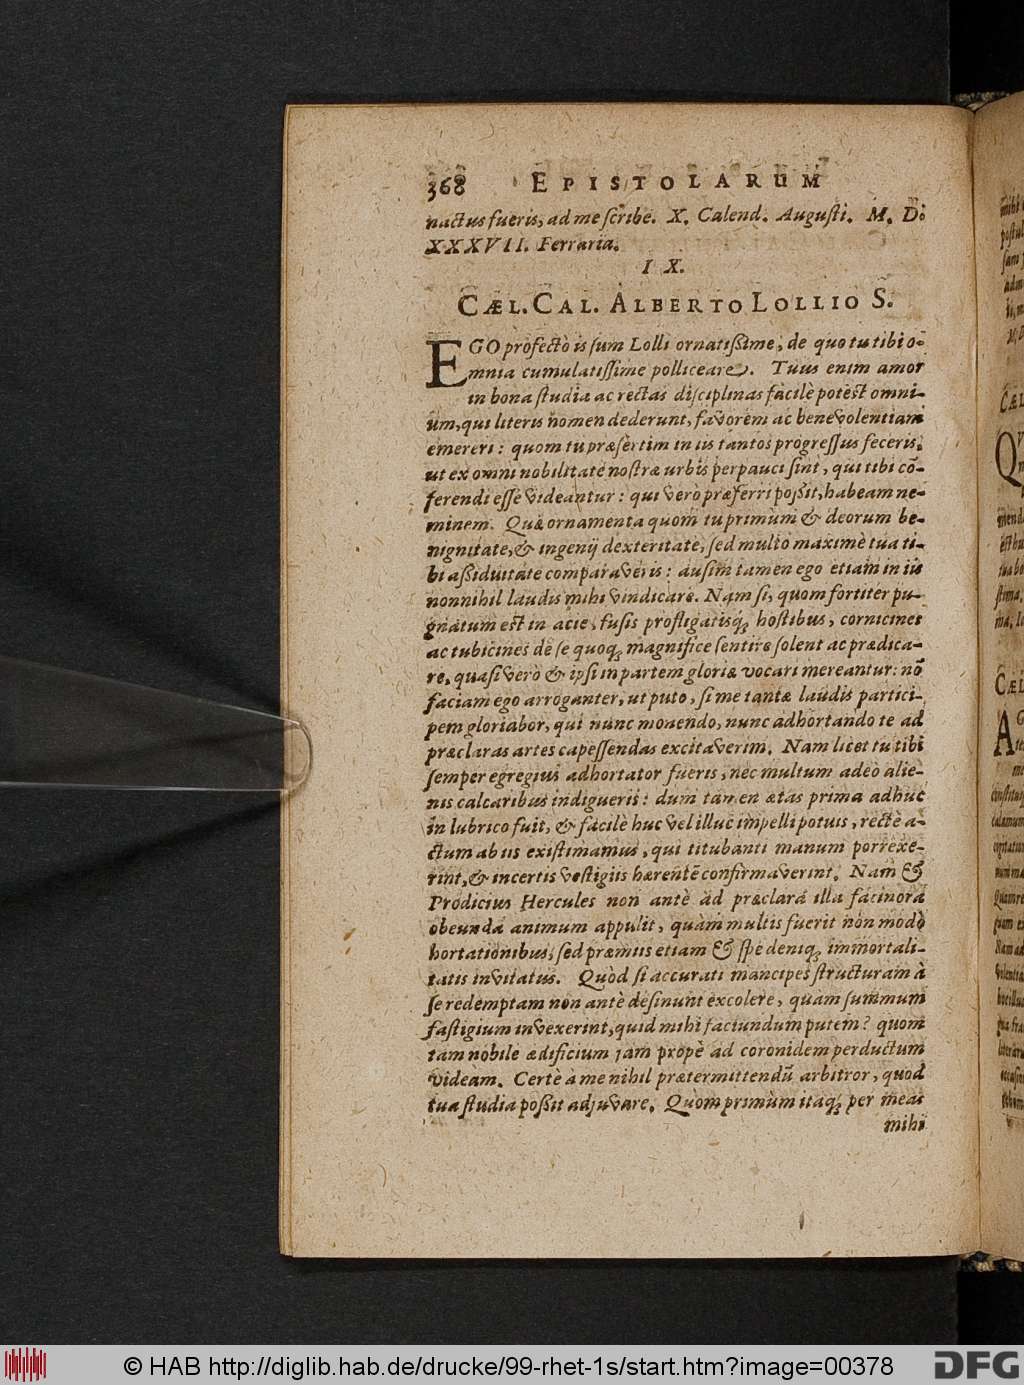 368 EPISTOLARUM
nactus fueris, ad me scribe. X. Calend. Augusti. M. D.
XXXVII. Ferraria.
IX.
CÆL. CAL. ALBERTO LOLLIO S.
EGO profectò is sum Lolli ornatißime, de quo tu tibi o-
mnia cumulatissime polliceare. Tuus enim amor
in bona studia ac rectas disciplinas facilè potest omni-
um, qui literis nomen dederunt, favorem ac benevolentiam
emereri: quom tu præsertim in iis tantos progressus feceris,
ut ex omni nobilitate nostræ urbis perpauci sint, qui tibi cõ-
ferendi esse videantur: qui verò præferri poßit, habeam ne-
minem. Quæ ornamenta quom tu primùm & deorum be-
nignitate, & ingenij dexteritate, sed multò maximè tua ti-
bi aßiduitate comparaveris: ausim tamen ego etiam in iis
nonnihil laudis mihi vindicare. Nam si, quom fortiter pu-
gnatum est in acie, fusis profligatisq́; hostibus, cornicines
ac tubicines de se quoq; magnifice sentire solent ac prædica-
re, quasi verò & ipsi in partem gloriæ vocari mereantur: nõ
faciam ego arroganter, ut puto, si me tantæ laudis partici-
pem gloriabor, qui nunc monendo, nunc adhortando te ad
præclaras artes capessendas excitaverim. Nam licet tu tibi
semper egregius adhortator fueris, nec multum adeò alie-
nis calcaribus indigueris: dum tamen ætas prima adhuc
in lubrico fuit, & facilè huc vel illuc impelli potuis, rectè a-
ctum ab iis existimamus, qui titubanti manum porrexe-
rint, & incertis vestigiis hærentẽ confirmaverint. Nam &
Prodicius Hercules non antè ad præclara illa facinora
obeunda animum appulit, quàm multis fuerit non modò
hortationibus, sed præmiis etiam & spe deniq; immortali-
tatis invitatus. Quòd si accurati mancipes structuram à
se redemptam non antè desinunt excolere, quam summum
fastigium invexerint, quid mihi faciundum putem? quom
tam nobile ædificium jam propè ad coronidem perductum
videam. Certè à me nihil prætermittendũ arbitror, quod
tua studia poßit adjuvare. Quom primùm itaq; per meas
mihi
© HAB http://diglib.hab.de/drucke/99-rhet-1s/start.htm?image=00378
DFG